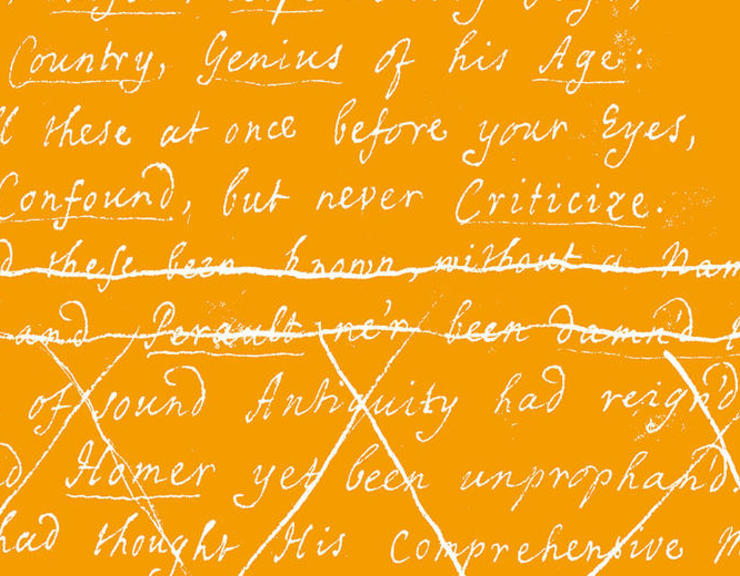 Country, Genius of his Age:
these at once before your Eyes,
Confound, but never Criticize.
these been known, without a
and Perault ne'r been damn'd
of sound Antiquity had reign'd
Homer yet been unprophan'd.
had thought His Comprehensive